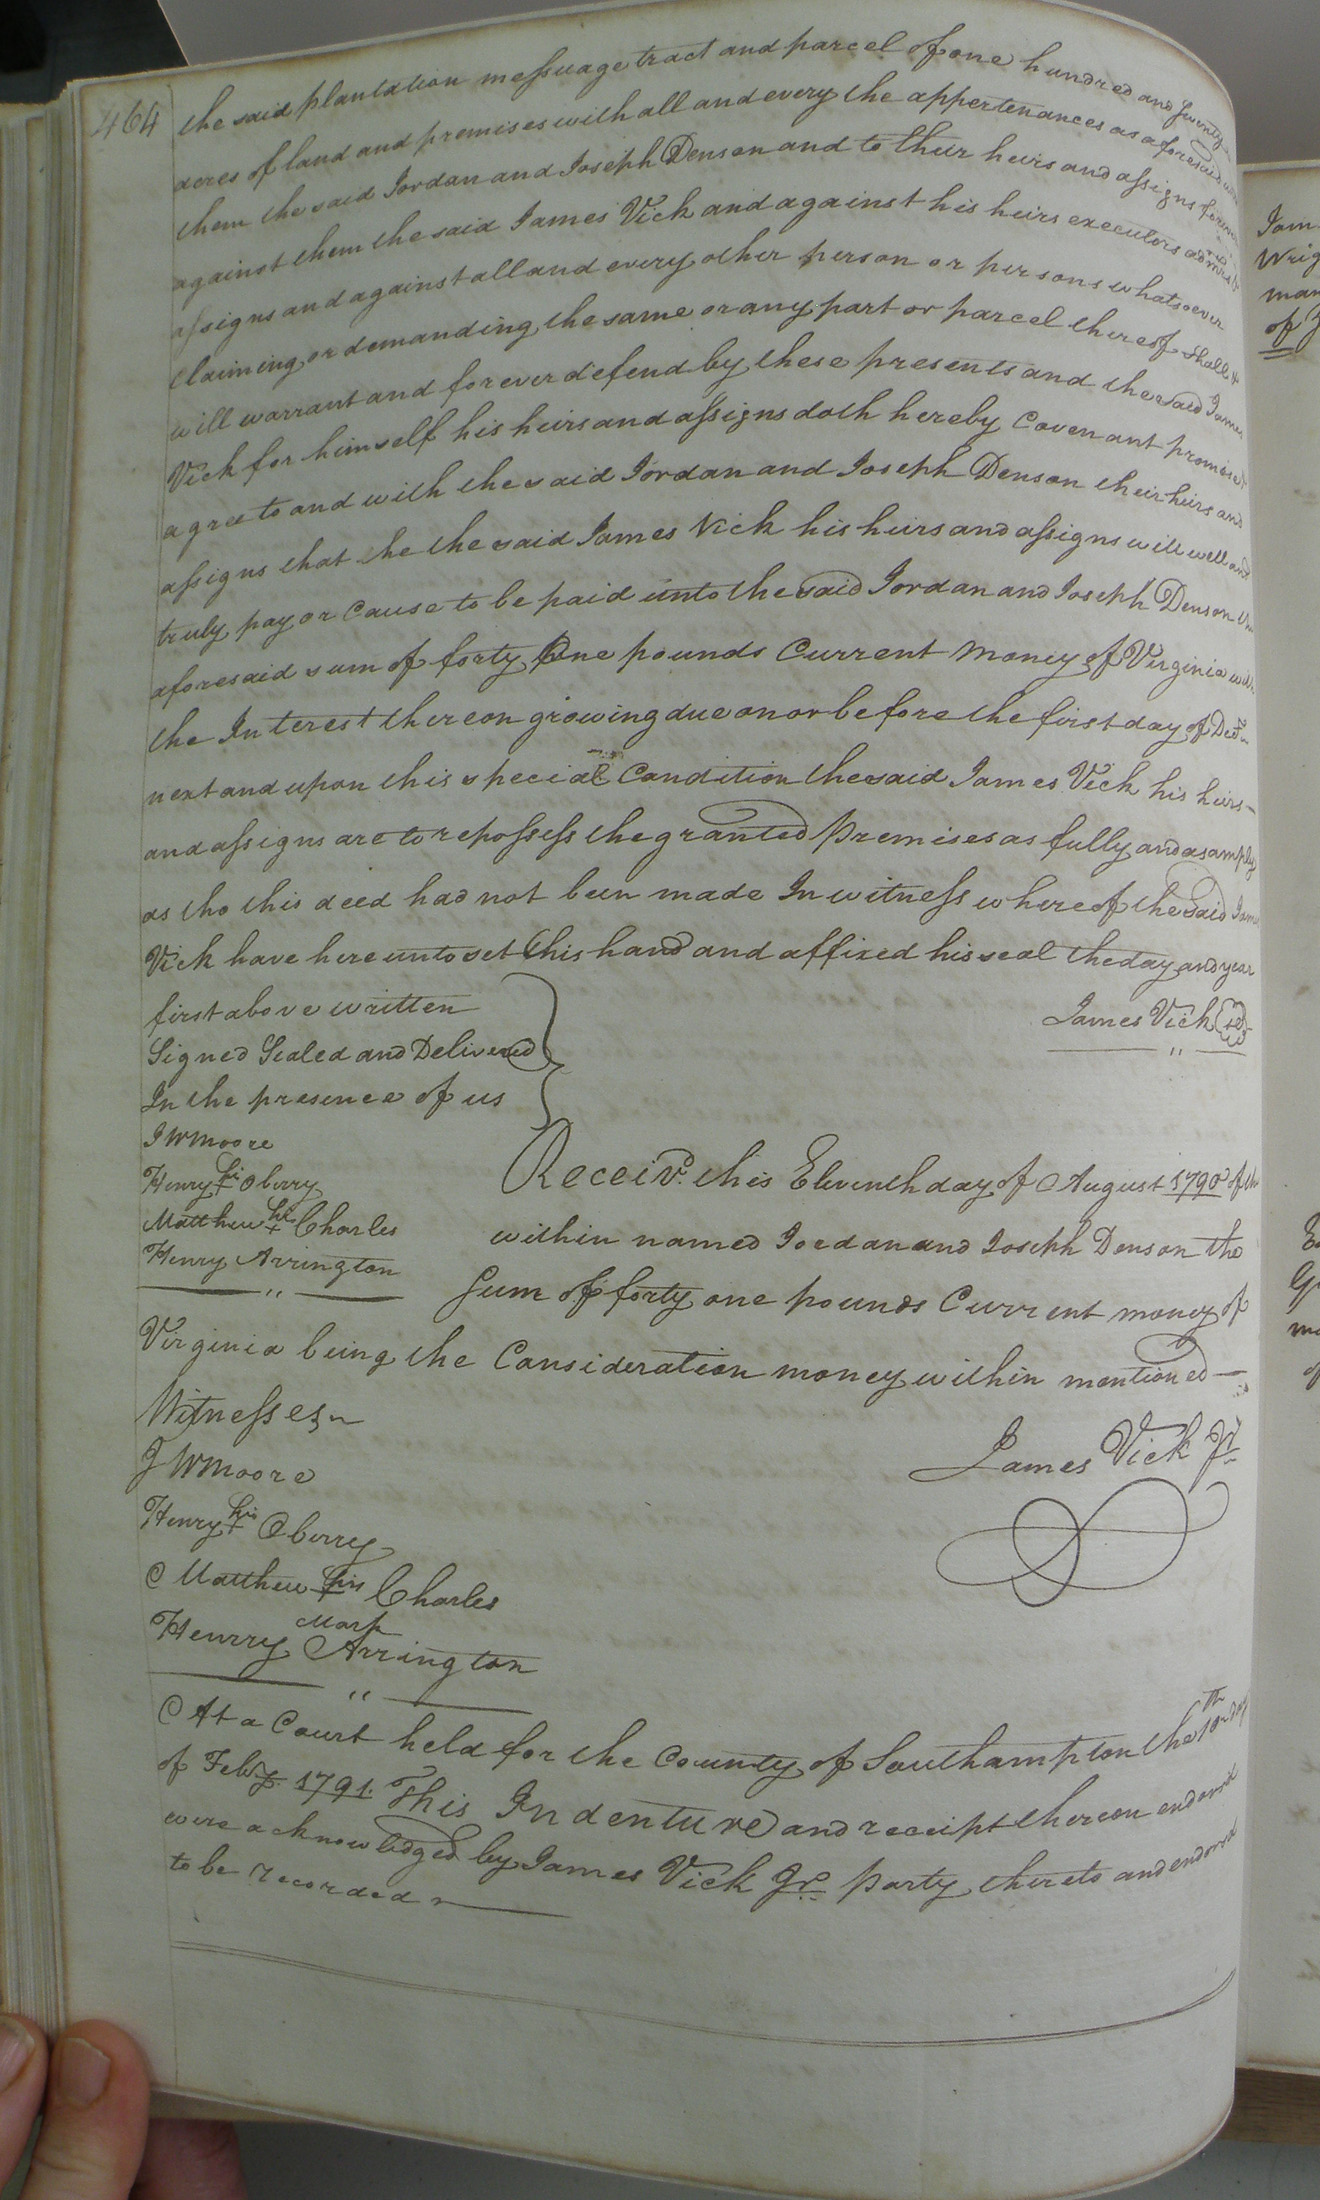 464
the said plantation messuage tract and parcel of one hundred and seventy
acres of land and premises with all and every the appertenances as aforesaid unto
them the said Jordan and Joseph Denson and to their heirs and assigns forever
against them the said James Vick and against his heirs executors admrs &
assigns and against all and every other person or persons whatsoever
claiming or demanding the same or any part or parcel thereof shall &
will warrant and forever defend by these presents and the said James
Vick for himself his heirs and assigns doth hereby Covenant promise &
agree to and with the said Jordan and Joseph Denson their heirs and
assigns that he the said James Vick his heirs and assigns will well and
truly pay or Cause to be paid unto the said Jordan and Joseph Denson the
aforesaid sum of forty One pounds Current money of Virginia with
the Interest thereon growing due on or before the first day of Decr
next and upon this special Condition the said James Vick his heirs
and assigns are to repossess the granted premises as fully and as amply
as tho this deed had not been made In witness whereof the said James
Vick have hereunto set his hand and affixed his seal the day and year
first above written
James Vick
Signed Sealed and Delivered
In the presence of us
J W Moore
Henry his + Oberry
Matthew his + Charles
Henry Arrington
Receivd. this Eleventh day of August 1790 of the
within named Jordan and Joseph Denson the
Sum of forty one pounds Current money of
Virginia being the Consideration money within mentioned
Witnesses
J W Moore
James Vick Jr
Henry his + Oberry
Matthew his + Charles
mark
Henrry Arrington
At a Court held for the County of Southampton the 10th day
of Feby 1791. This Indenture and receipt thereon endorsed
were acknowledged by James Vick Jr. party thereto and endorsed
to be recorded
Jam
Wrig
man
of